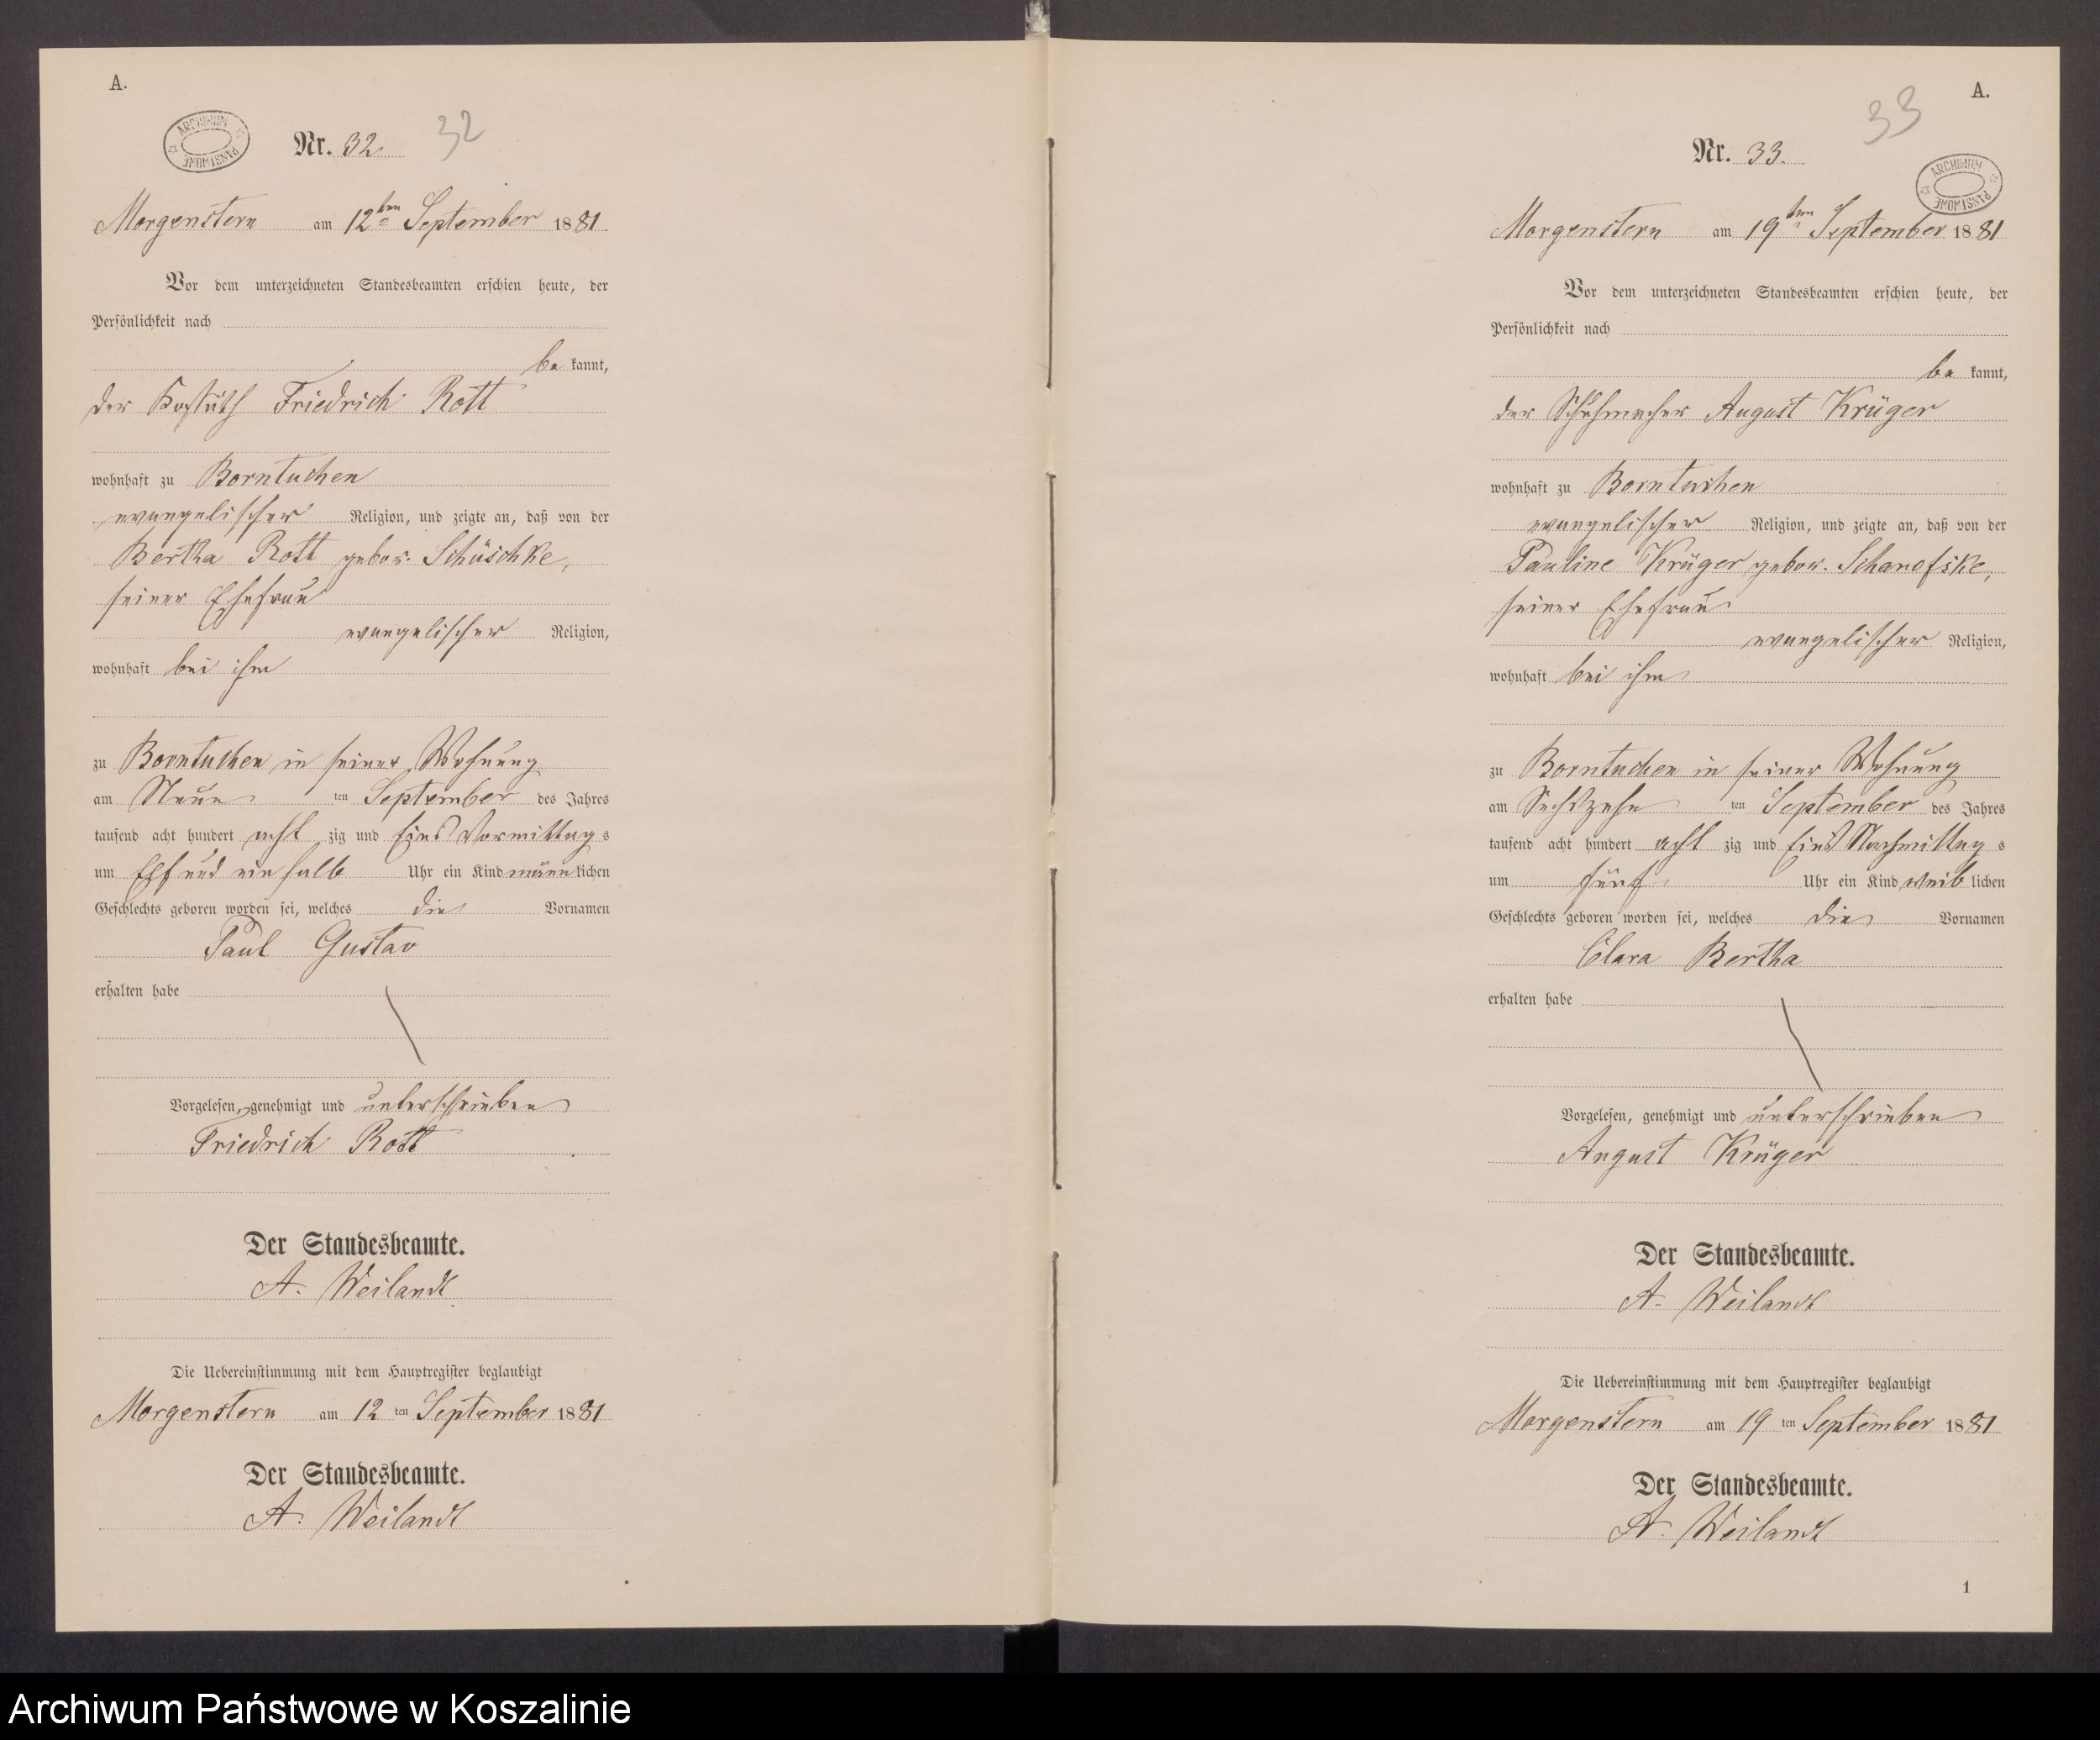 A.
ARCHIWUM PAŃSTWOWE
Nr. 32. 32
Morgenstern am 12ten September 1881
Vor dem unterzeichneten Standesbeamten erschien heute, der
Persönlichkeit nach
be kannt,
der Friedrich Rott
wohnhaft zu Borntuchen
evangelischer Religion, und zeigte an, daß von der
Bertha Rott gebor. Schüschke,
seiner Ehefrau
evangelischer Religion,
wohnhaft bei ihm
zu Borntuchen in seiner Wohnung
am Neun ten September des Jahres
tausend acht hundert acht zig und Eins Vormittag s
um Elf und ein halb Uhr ein Kind männ lichen
Geschlechts geboren worden sei, welches die Vornamen
Paul Gustav
erhalten habe
Vorgelesen, genehmigt und unterschrieben
Friedrich Rott
Der Standesbeamte.
A. Weilandt
Die Uebereinstimmung mit dem Hauptregister beglaubigt
Morgenstern am 12 ten September 1881
Der Standesbeamte.
A. Weilandt
A.
33
Nr. 33.
ARCHIWUM PAŃSTWOWE
Morgenstern am 19ten September 1881
Vor dem unterzeichneten Standesbeamten erschien heute, der
Persönlichkeit nach
be kannt,
der Schuhmacher August Krüger
wohnhaft zu Borntuchen
evangelischer Religion, und zeigte an, daß von der
Pauline Krüger gebor. Scharofske,
seiner Ehefrau
evangelischer Religion,
wohnhaft bei ihm
zu Borntuchen in seiner Wohnung
am Sechszehn ten September des Jahres
tausend acht hundert acht zig und Eins Nachmittag s
um fünf Uhr ein Kind weib lichen
Geschlechts geboren worden sei, welches die Vornamen
Clara Bertha
erhalten habe
Vorgelesen, genehmigt und unterschrieben
August Krüger
Der Standesbeamte.
A. Weilandt
Die Uebereinstimmung mit dem Hauptregister beglaubigt
Morgenstern am 19 ten September 1881
Der Standesbeamte.
A. Weilandt
1
Archiwum Państwowe w Koszalinie